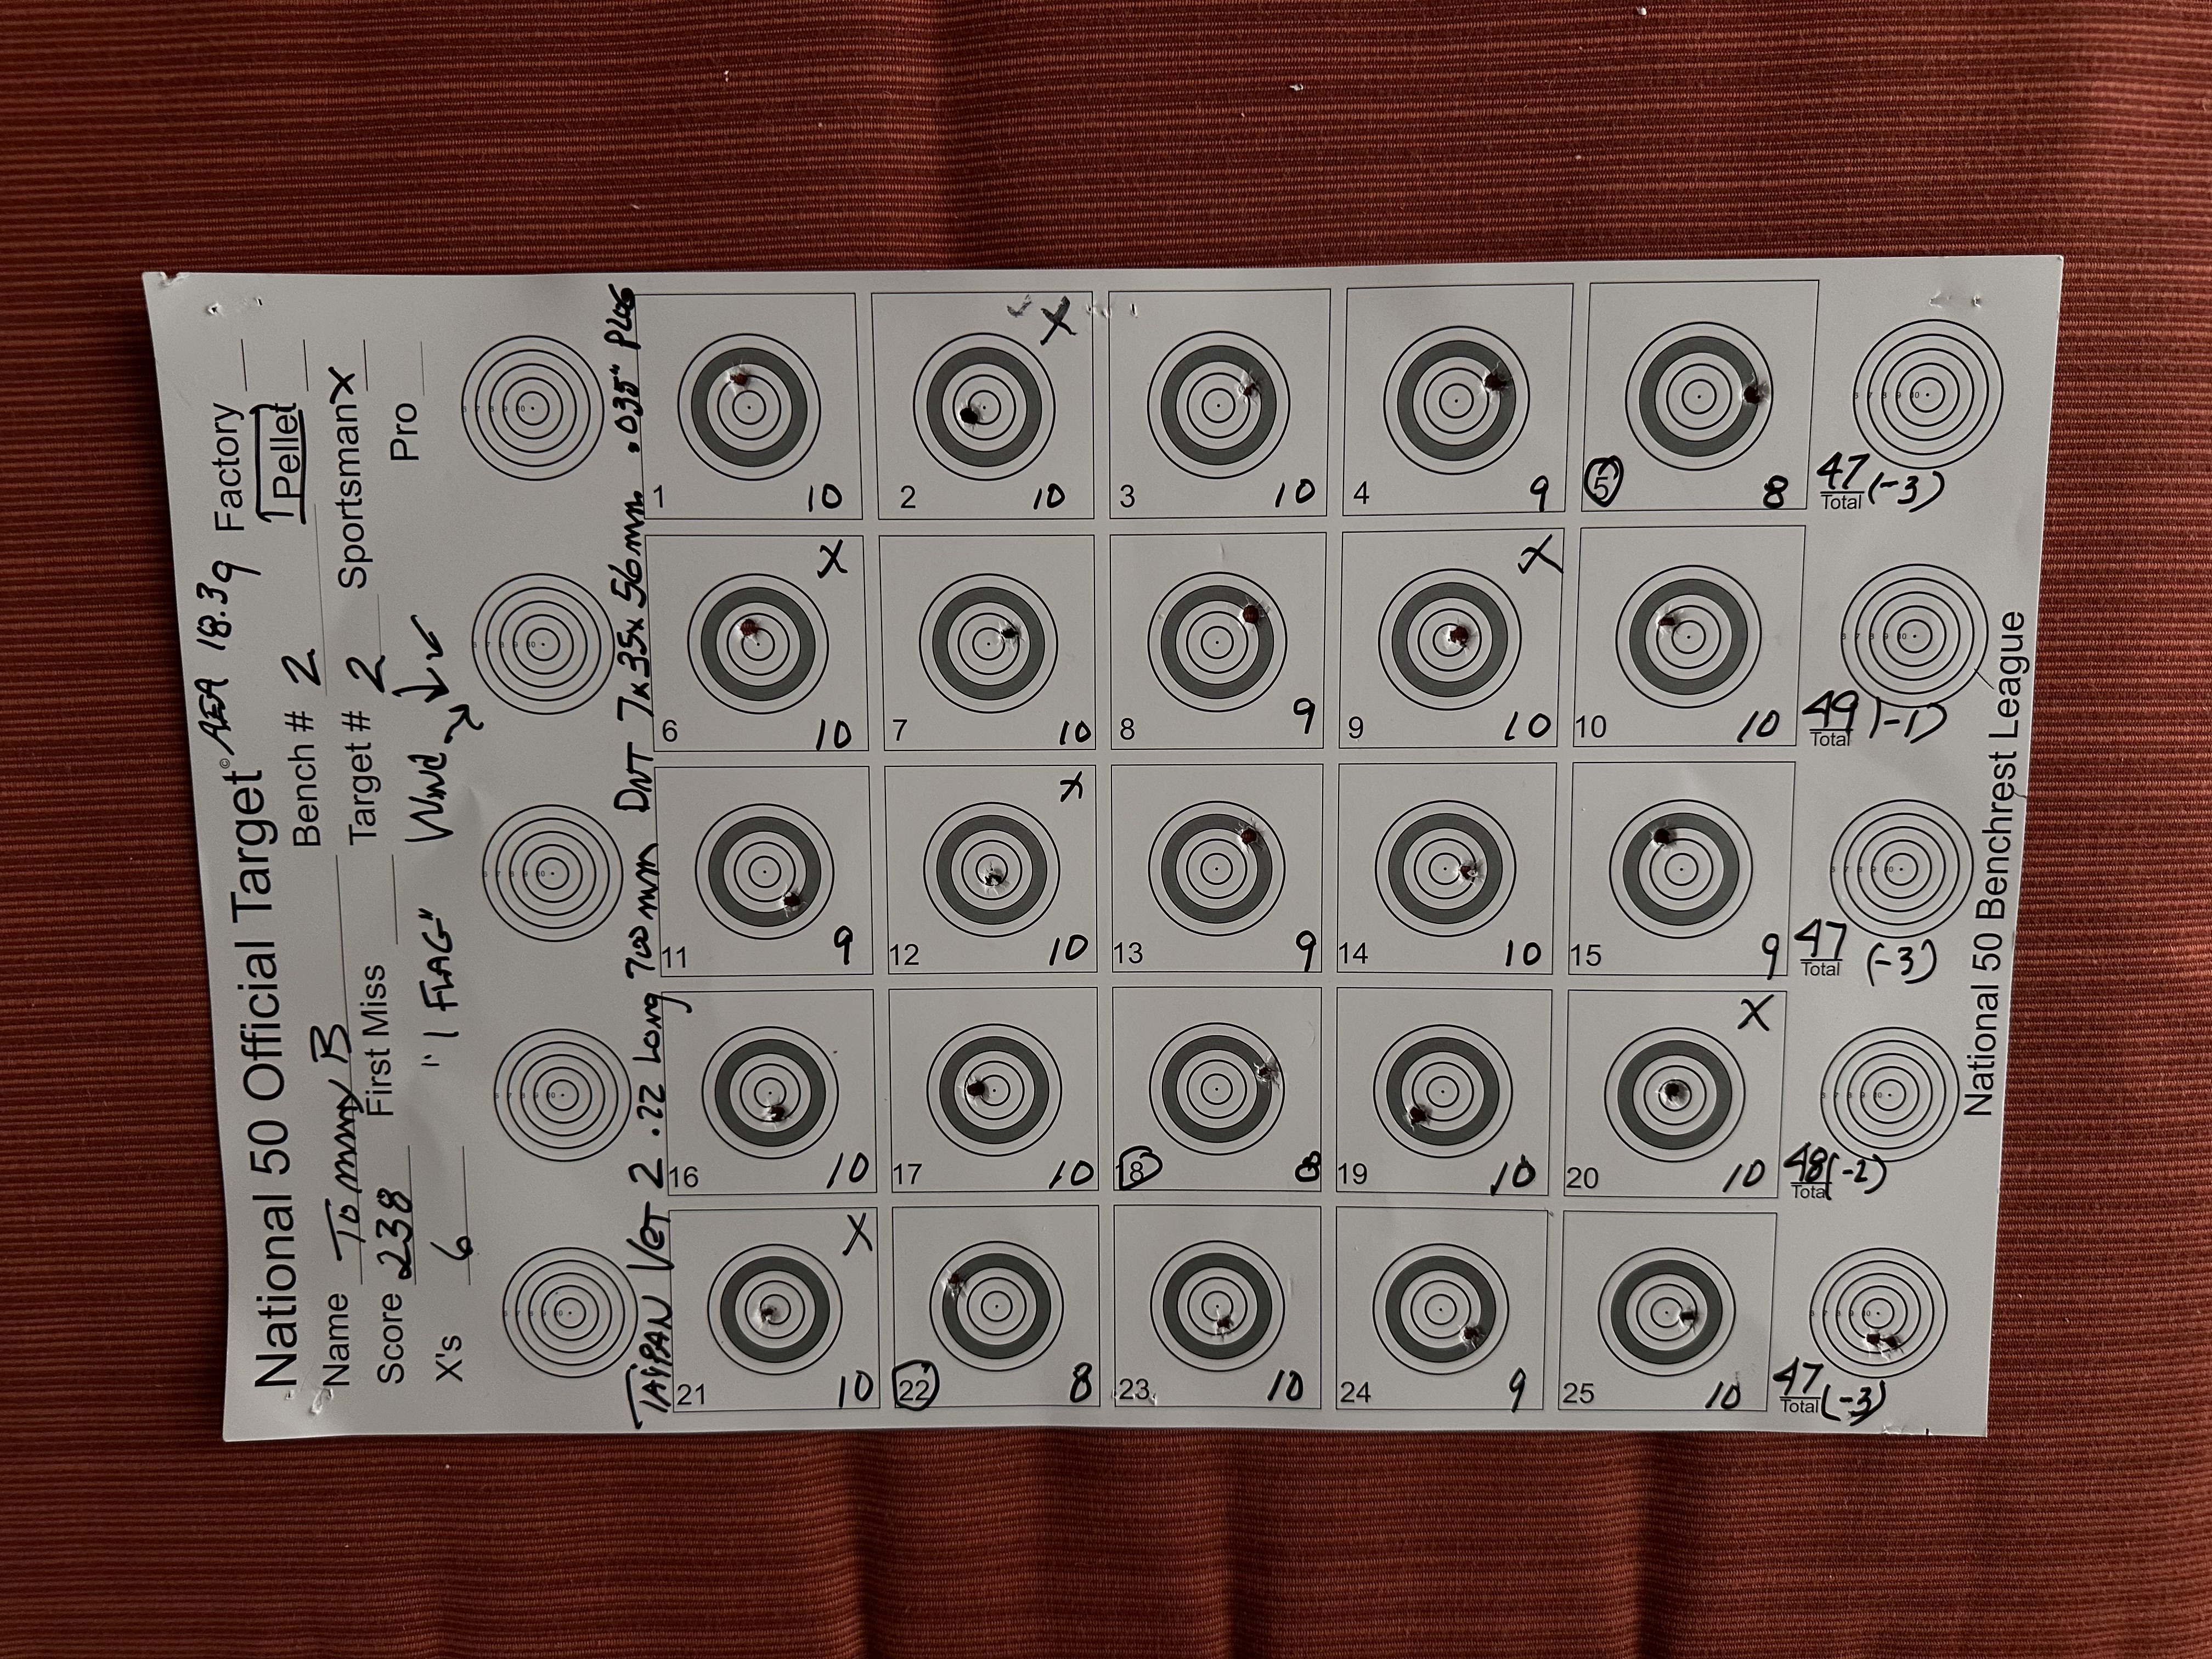 National 50 Official Target©
AEA 18.3g
Factory
Pellet
Name Tommy B
Bench # 2
Sportsman X
Score 238
First Miss
Target # 2
Pro
X's 6
"1 FLAG"
Wind
TAIPAN VET 2 .22 Long 700mm DNT 7x35x56mm .035" Plus
1 10
2 X 10
3 10
4 9
5 8
47 (-3)
Total
6 X 10
7 10
8 9
9 X 10
10 10
49 (-1)
Total
11 9
12 X 10
13 9
14 10
15 9
47 (-3)
Total
16 10
17 10
18 8
19 10
20 X 10
48 (-2)
Total
21 X 10
22 8
23 10
24 9
25 10
47 (-3)
Total
National 50 Benchrest League